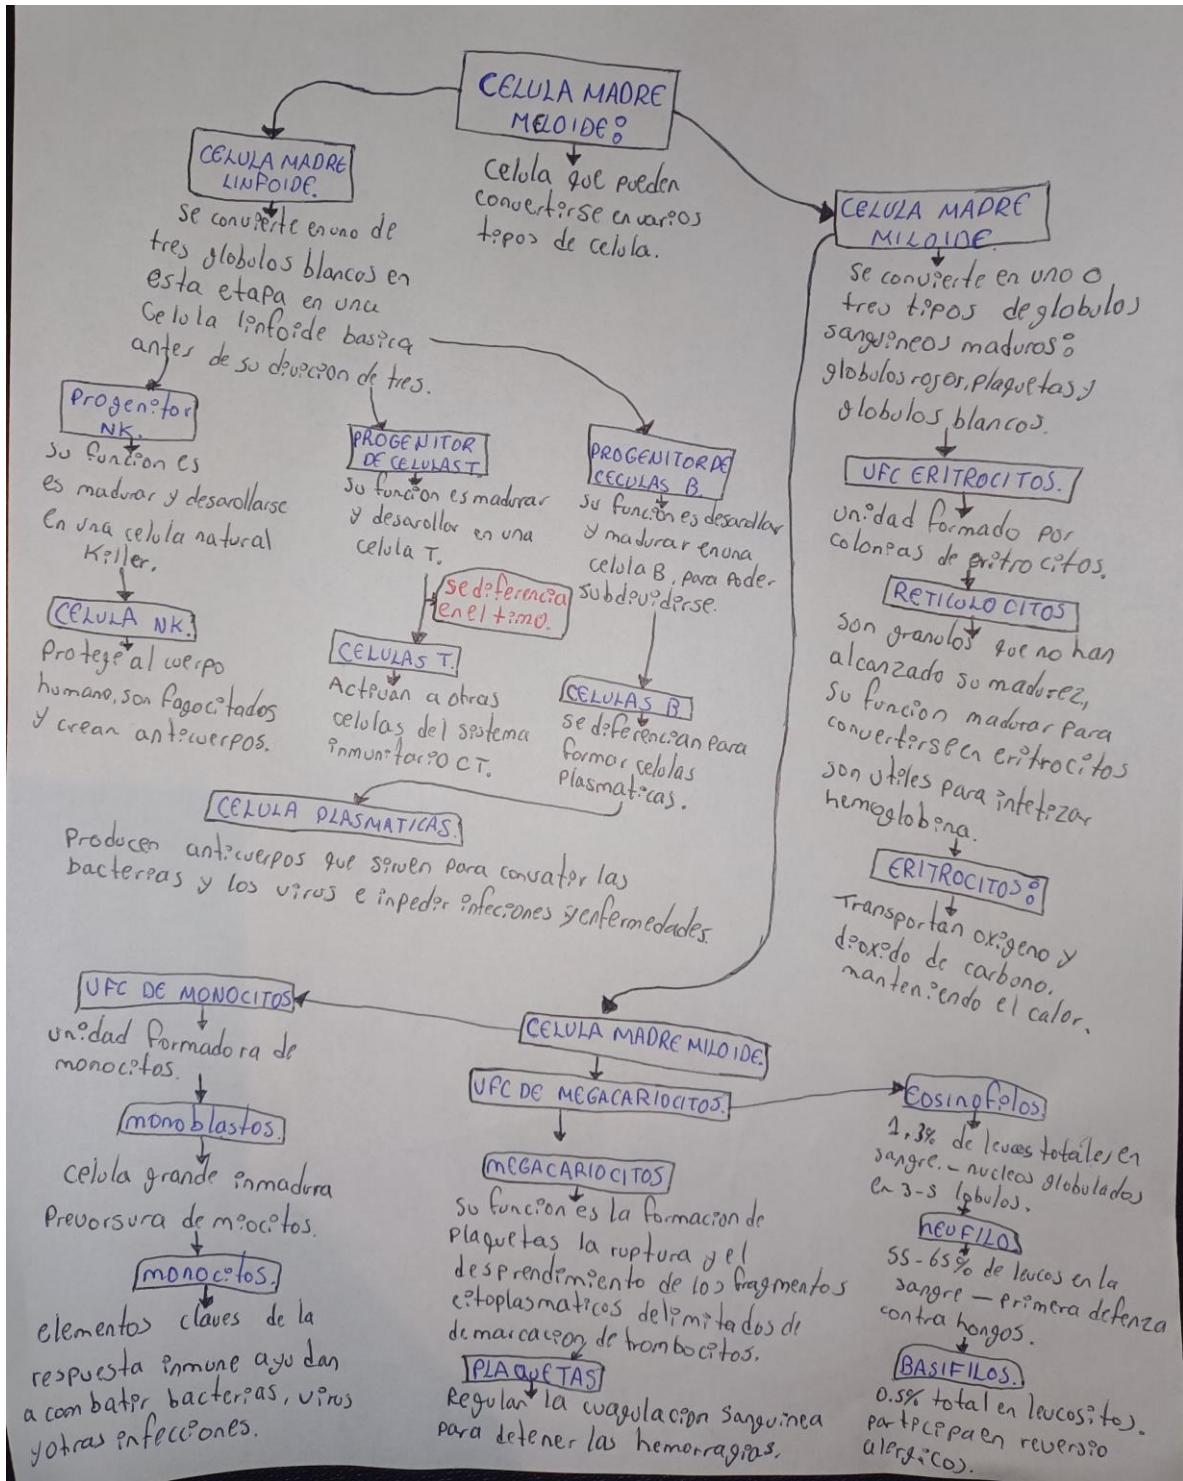 CELULA MADRE
MELOIDE:
Celula que pueden
convertirse en varios
tipos de celula.
CELULA MADRE
LINFOIDE.
se convierte en uno de
tres globulos blancos en
esta etapa en una
Celula linfoide basica
antes de su divicion de tres.
Progenitor
NK.
su función es
es madurar y desarollarse
en una celula natural
Killer.
CELULA NK.
Protege al cuerpo
humano, son fagocitados
y crean anticuerpos.
PROGENITOR
DE CELULAS T.
su función es madurar
y desarollar en una
celula T.
se diferencia
en el timo.
CELULAS T.
Activan a otras
celulas del sistema
inmunitario CT.
PROGENITOR DE
CECULAS B.
su función es desarollar
y madurar en una
celula B, para poder
subdividirse.
CELULAS B.
se diferencian para
formar celulas
plasmaticas.
CELULA PLASMATICAS.
Producen anticuerpos que sirven para convatir las
bacterias y los virus e inpedir infeciones y enfermedades.
CELULA MADRE
MILOIDE.
se convierte en uno o
tres tipos de globulos
sanguineos maduros:
globulos rojos, plaquetas y
globulos blancos.
UFC ERITROCITOS.
unidad formado por
colonias de eritrocitos.
RETICULOCITOS
son granulos que no han
alcanzado su madurez,
su funcion madurar para
convertirse en eritrocitos
son utiles para intetizar
hemoglobina.
ERITROCITOS:
Transportan oxigeno y
dioxido de carbono.
manteniendo el calor.
CELULA MADRE MILOIDE.
UFC DE MONOCITOS
unidad formadora de
monocitos.
monoblastos.
celula grande inmadura
Prevorsura de miocitos.
monocitos.
elementos claves de la
respuesta inmune ayudan
a combatir bacterias, virus
y otras infecciones.
UFC DE MEGACARIOCITOS.
MEGACARIOCITOS
su función es la formacion de
plaquetas la ruptura y el
desprendimiento de los fragmentos
citoplasmaticos delimitados de
demarcacion de trombocitos.
PLAQUETAS
Regulan la cuagulacion sanguinea
para detener las hemorragias.
Eosinofilos.
1,3% de leucos totales en
sangre. - nucleos globulados
en 3-5 lobulos.
NEUFILOS
55-65% de leucos en la
sangre — primera defenza
contra hongos.
BASIFILOS.
0.5% total en leucositos.
participa en reversio
alergicos.